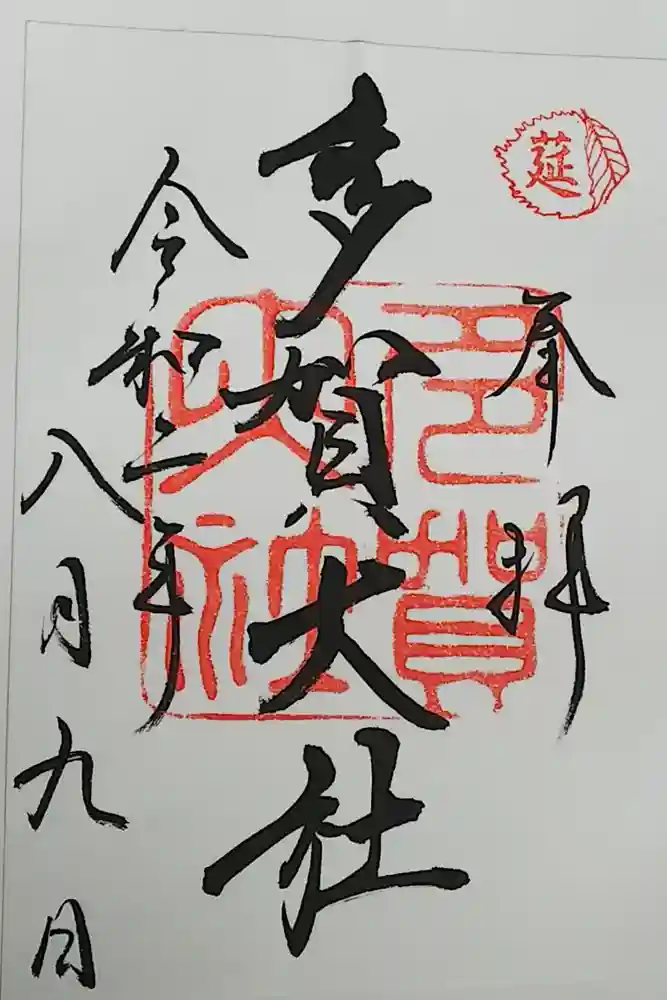 莚
奉拝
多賀大社
多賀大社
令和二年
八月九日